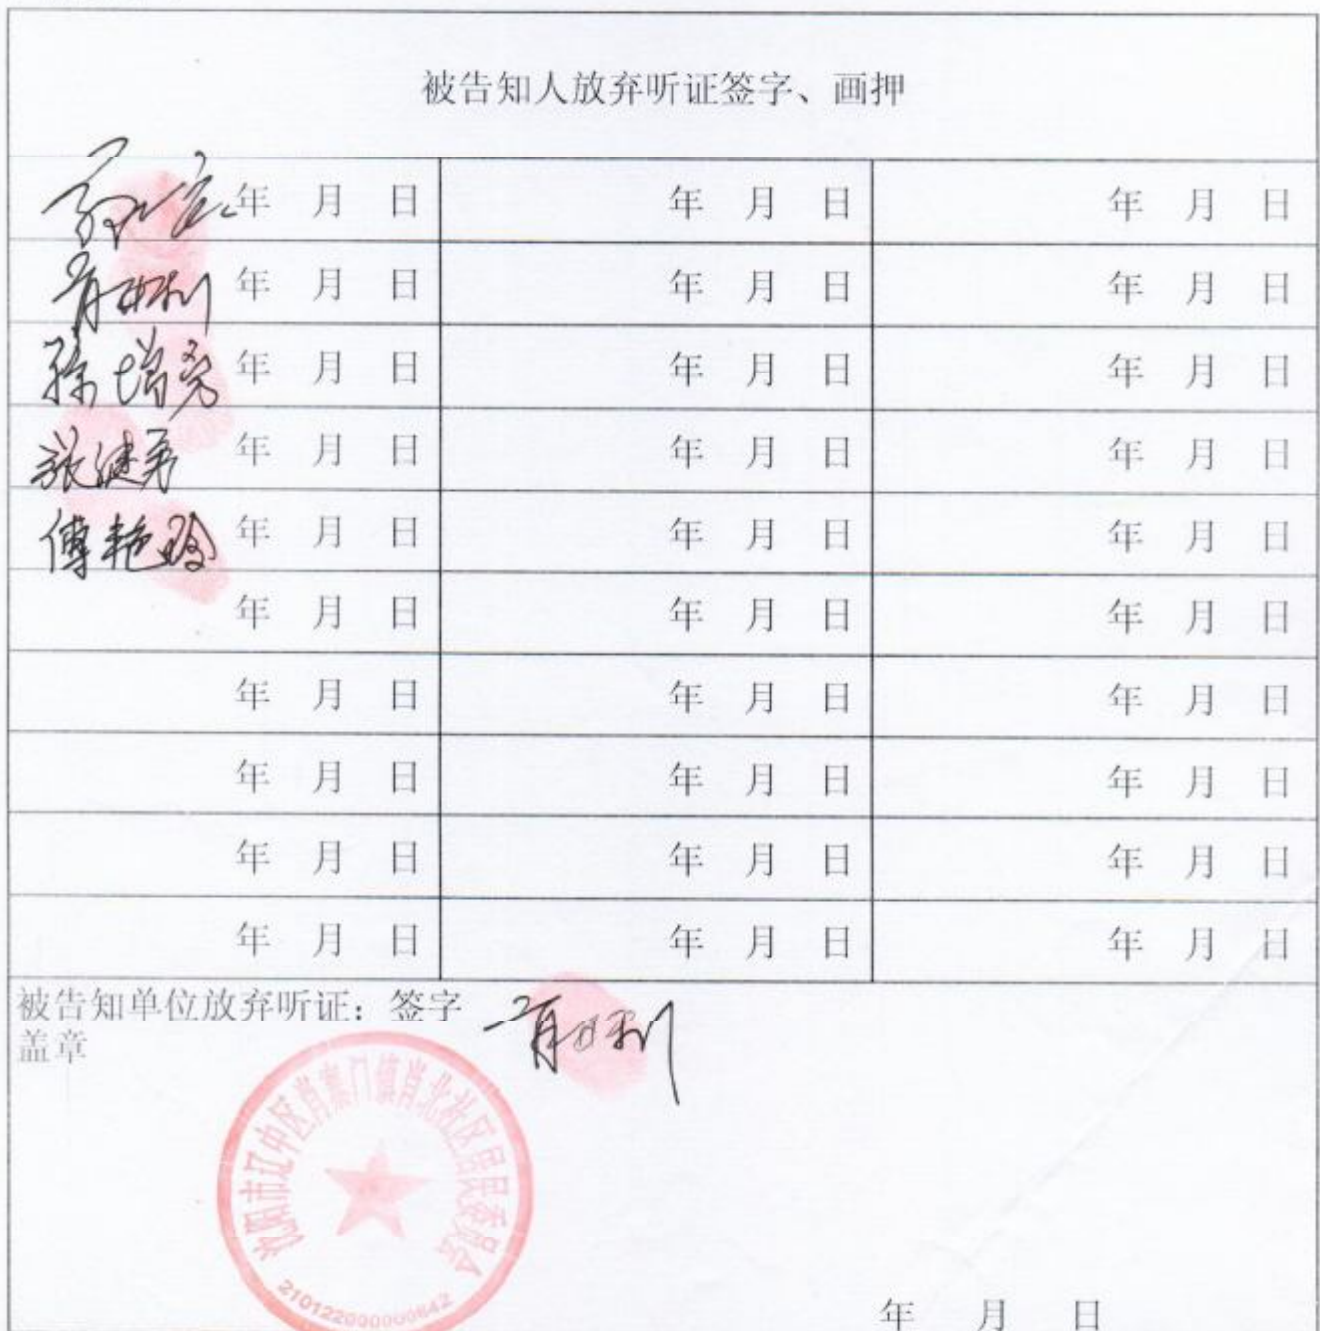 被告知人放弃听证签字、画押
年 月 日 年 月 日 年 月 日
年 月 日 年 月 日 年 月 日
孙增亮 年 月 日 年 月 日 年 月 日
张继弟 年 月 日 年 月 日 年 月 日
傅艳玲 年 月 日 年 月 日 年 月 日
年 月 日 年 月 日 年 月 日
年 月 日 年 月 日 年 月 日
年 月 日 年 月 日 年 月 日
年 月 日 年 月 日 年 月 日
年 月 日 年 月 日 年 月 日
被告知单位放弃听证：签字
盖章
沈阳市辽中区肖寨门镇肖北社区居民委员会
210122000000642
年 月 日